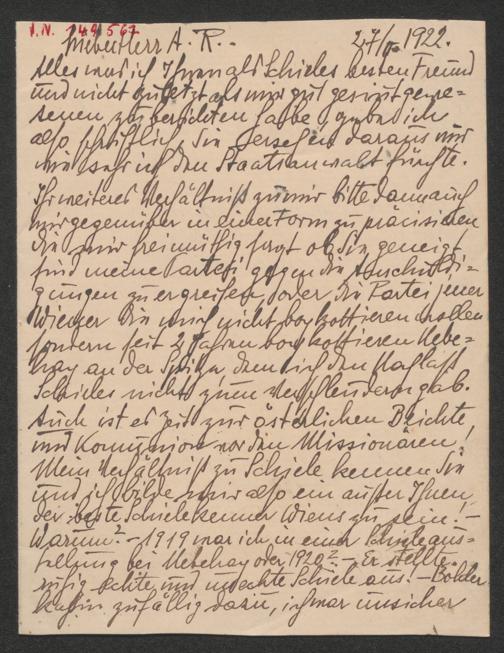 I.N. 149.567
Lieber Herr A. R.. 27/ 1922.
Alles was ich Ihnen als Schieles besten Freund
und nicht zuletzt als mir gut gesinnt gewe-
senen zu berichten habe gebe ich
also schriftlich. Sie ersehen daraus nur
wie sehr ich den Staatsanwalt fürchte.
Ihr weiteres Verhältniß zu mir bitte dann auch
mir gegenüber in einer Form zu präcisieren
die mir freimüthig sagt ob Sie geneigt
sind meine Partei gegen die Anschuldi-
gungen zu ergreifen, oder die Partei jener
Wiener die mich nicht boykottieren wollen
sondern seit 2 Jahren boykottieren Nebe-
hay an der Spitze, dem ich den Nachlaß
Schieles nicht zum Verschleudern gab.
Auch ist es Zeit zur österlichen Beichte
und Kommunion vor den Missionaren!
Mein Verhältniß zu Schiele kennen Sie
und ich bilde mir also ein außer Ihnen
der beste Schielekenner Wiens zu sein! –
Warum? – 1919 war ich in einer Schieleaus-
stellung bei Nebehay oder 1920? – Er stellte
echte und unechte Schiele aus. –
zufällig dazu, ich war unsicher